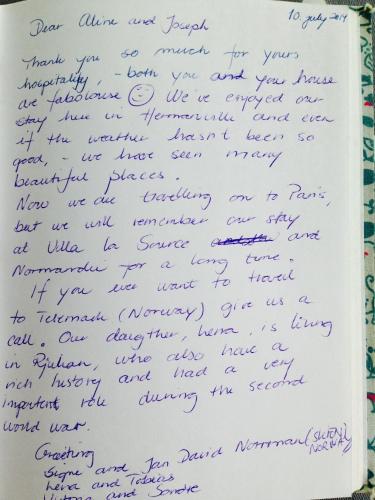 Dear Aline and Joseph
10. july 2014
Thank you so much for yours
hospitality, - both you and your house
are fabolouse ☺ We've enjoyed our
stay here in Hermanville and even
if the weather hasn't been so
good, - we have seen many
beautiful places.
Now we are travelling on to Paris,
but we will remember our stay
at Villa la Source and
Normandie for a long time.
If you ever want to travel
to Telemark (Norway) give us a
call. Our daugther, Lena, is living
in Rjukan, who also have a
rich history and had a very
important role during the second
world war.
Greeting
Signe and Jan David Norrman (SKIEN NORWAY)
Lena and Tobias
and Sondre